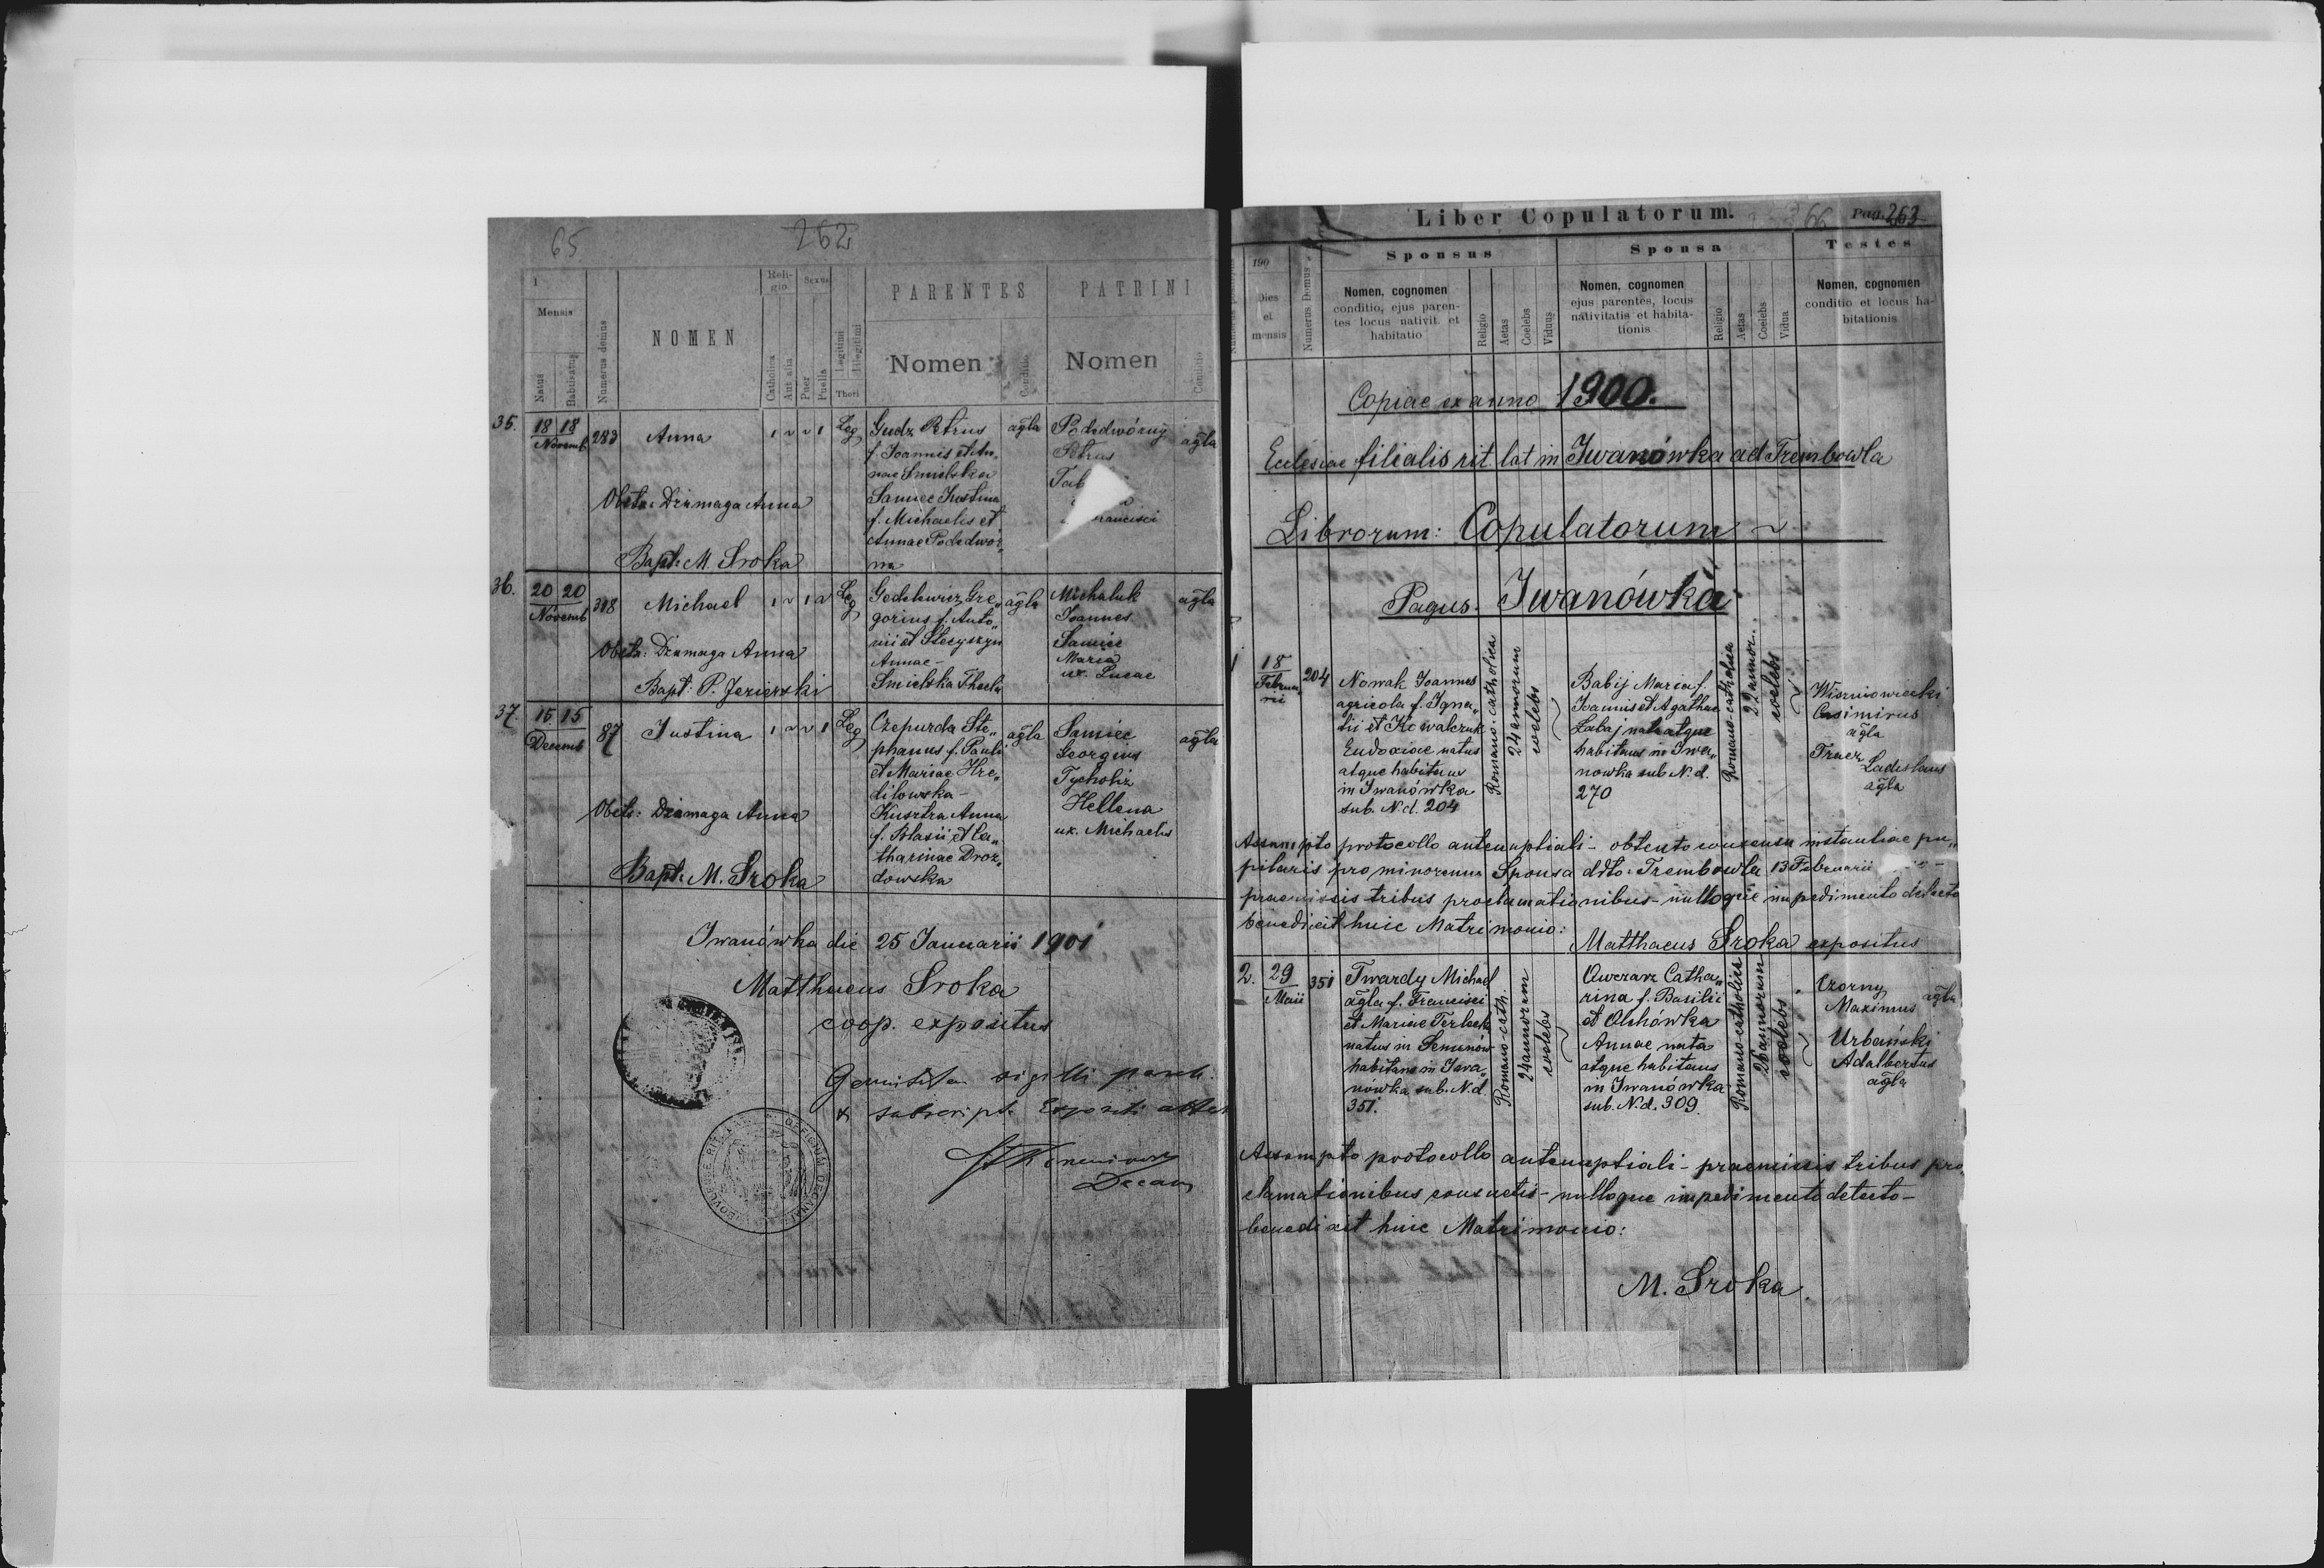 65
262
1
Mensis
Natus
Babtisatus
Numerus domus
NOMEN
Religio
Catholica
Aut alia
Sexus
Puer
Puella
Legitimi
Illegitimi
Thori
PARENTES
Nomen
Conditio
PATRINI
Nomen
Conditio
35. 18 18 Novemb 283 Anna 1 ~ ~ 1 Leg
Gudz Petrus
f. Joannis et An„
nae Smielska
Samiec Justina
f. Michaelis et
Annae Podedwór„
na
agla
Podedwórny
Petrus
Francisci
agla
Obste: Dzamaga Anna
Bapt: M. Sroka
36. 20 20 Novemb 318 Michael 1 ~ 1 ~ Leg
Gedekwicz Gre„
gorius f. Anto„
nii et Stecyszyn
Annae -
Smielska Thecla
agla
Michaluk
Joannes
Samiec
Maria
ux. Lucae
agla
Obste: Dzamaga Anna
Bapt: P. Jezierski
37. 15 15 Decemb 87 Justina 1 ~ ~ 1 Leg
Czepurda Ste„
phanus f. Pauli
et Mariae Hre„
lilowska -
Kusztra Anna
f. Blasii et Ca„
tharinae Droz„
dowska
agla
Samiec
Georgius
Tycholiz
Hellena
ux. Michaelis
agla
Obste: Dzamaga Anna
Bapt: M. Sroka
Iwanówka die 25 Januarii 1901
Matthaeus Sroka
coop. expositus
sigilli paroch.
& subscript. Expositi
Decan
OFFICIUM DECANALE
Liber Copulatorum.
66 Pag. 263
190
Dies
et
mensis
Numerus Domus
Sponsus
Nomen, cognomen
conditio, ejus paren-
tes locus nativit. et
habitatio
Religio
Aetas
Coelebs
Viduus
Sponsa
Nomen, cognomen
ejus parentes, locus
nativitatis et habita-
tionis
Religio
Aetas
Coelebs
Vidua
Testes
Nomen, cognomen
conditio et locus ha-
bitationis
Copiae ex anno 1900.
Ecclesiae filialis rit. lat in Iwanówka ad Trembowla
Librorum: Copulatorum ~
Pagus. Iwanówka
1 18 Februa„rii 204
Nowak Joannes
agricola f. Igna„
tii et Kowalczuk
Eudoxiae natus
atque habitans
in Iwanówka
sub. N. d. 204
Romano-catholica
24 annorum
coelebs
Babij Maria f.
Joannis et Agathae
Łabaj nata atque
habitans in Iwa„
nowka sub. N. d.
270
Romano-catholica
22 annor.
coelebs
Wiszniowiecki
Casimirus
agla
Tracz
Ladislaus
agla
Assumpto protocollo antenuptiali - obtento consensu instantiae pu„
pilaris pro minorenna Sponsa ddto: Trembowla 13 Februarii
praemissis tribus proclamationibus - nulloque impedimento detecto
benedixit huic Matrimonio:
Matthaeus Sroka expositus
2. 29 Maii 351
Twardy Michael
agla f. Francisci
et Mariae Terlecka
natus in Semenów
habitans in Iwa„
nówka sub. N. d.
351.
Romano-cath.
24 annorum
coelebs
Owczarz Catha„
rina f. Basilii
et Olchówka
Annae nata
atque habitans
in Iwanówka
sub. N. d. 309.
Romano-catholica
26 annorum
coelebs
Czorny
Maximus
agla
Urbański
Adalbertus
agla
Assumpto protocollo antenuptiali - praemissis tribus pro„
clamationibus consuetis - nulloque impedimento detecto -
benedixit huic Matrimonio:
M. Sroka.